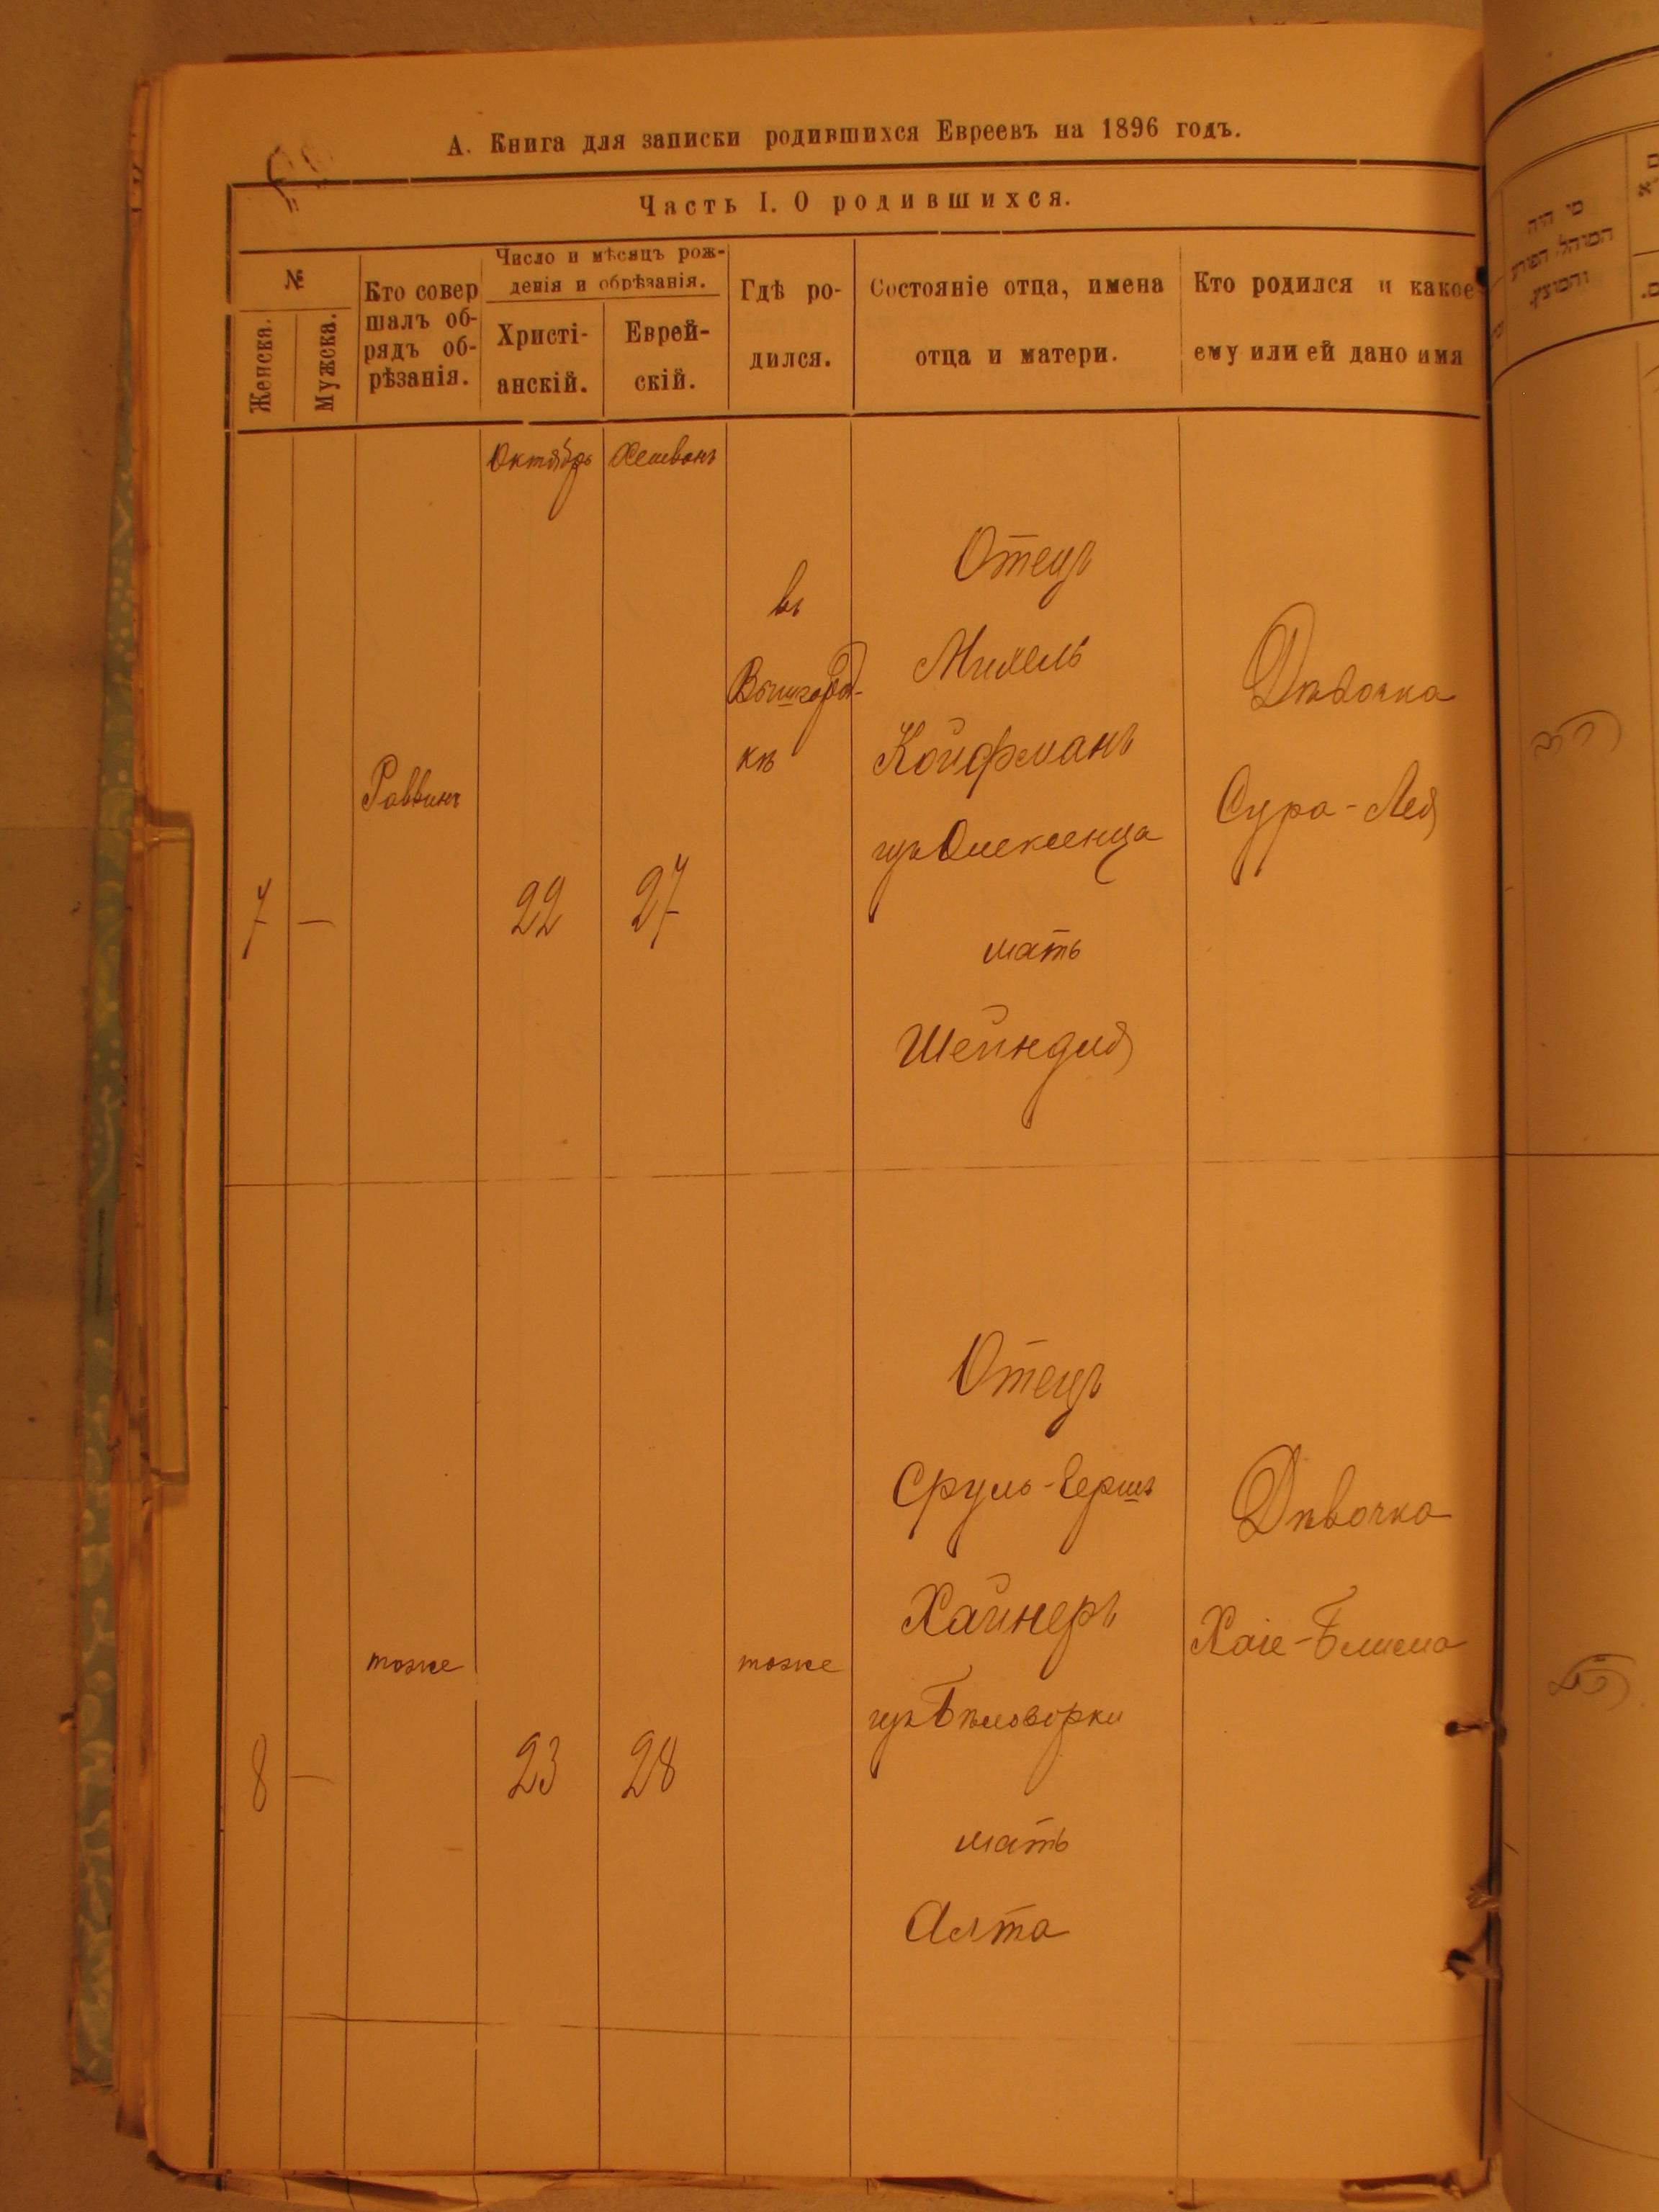 А. Книга для записки родившихся Евреевъ на 1896 годъ.
Часть I. О родившихся.
№
Женска.
Мужска.
Кто совер
шалъ об-
рядъ об-
рѣзанія.
Число и мѣсяцъ рож-
денія и обрѣзанія.
Христі-
анскій.
Еврей-
скій.
Гдѣ ро-
дился.
Состояніе отца, имена
отца и матери.
Кто родился и какое
ему или ей дано имя
Октябрь
Хешванъ
7
—
Раввинъ
22
27
въ
Вышгород-
кѣ
Отецъ
Михель
Койфманъ
изъ Олексенца
мать
Шейндля
Дѣвочка
Сура-Лея
8
—
тоже
23
28
тоже
Отецъ
Сруль-Гершъ
Хайнеръ
изъ Бѣлозорки
мать
Алта
Дѣвочка
Хаіе-Блима
מי היה
המוהל, הפורע
והמוצץ.